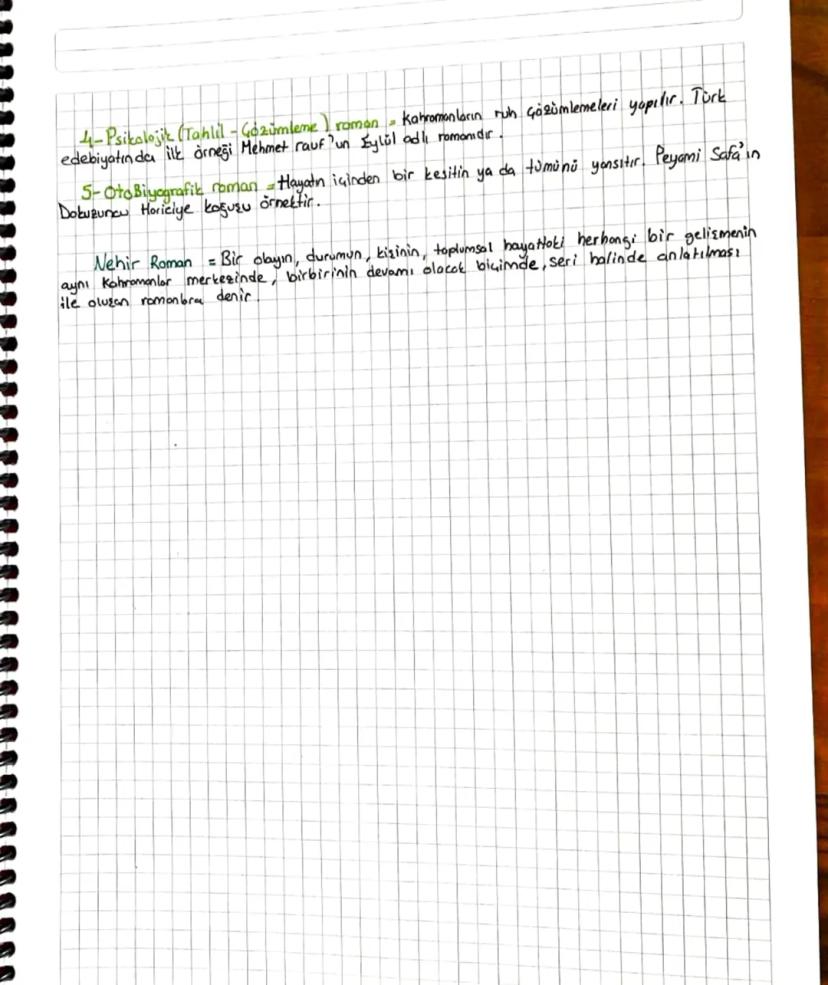 4- Psikolojik (Tahlil - Çözümleme) roman = Kahramanların ruh çözümlemeleri yapılır. Türk
edebiyatında ilk örneği Mehmet rauf'un Eylül adlı romanıdır.
5- OtoBiyografik roman = Hayatın içinden bir kesitin ya da tümünü yansıtır. Peyami Safa'ın
Dokuzuncu Hariciye koğuşu örnektir.
Nehir Roman = Bir olayın, durumun, kişinin, toplumsal hayattaki herhangi bir gelişmenin
aynı Kahramanlar merkezinde, birbirinin devamı olacak biçimde, seri halinde anlatılması
ile oluşan romanlara denir.